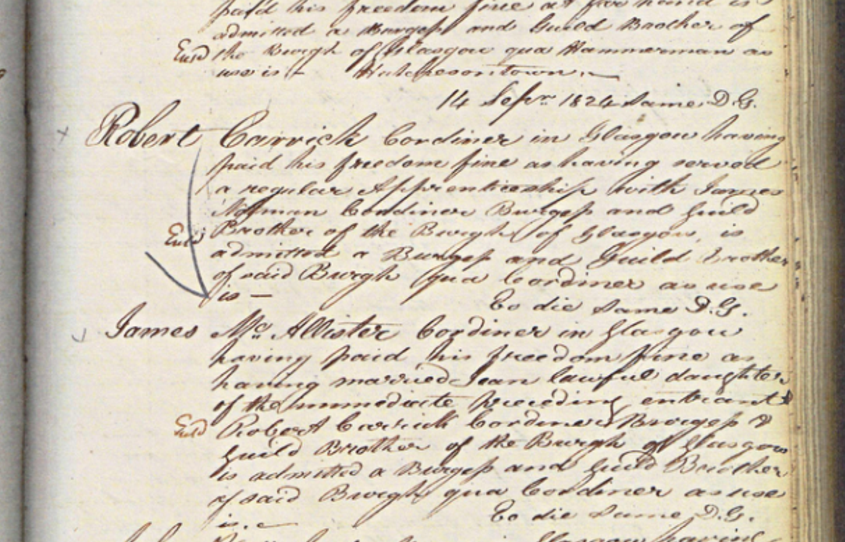 paid his freedom fine as far hand is
admitted a Burgess and Guild Brother of
Entd the Burgh of Glasgow qua Hammerman as
use is – Hutchesontown.
14 Sepr. 1824 Same D.G.
Robert Carrick Cordiner in Glasgow having
paid his freedom fine as having served
a regular Apprenticeship with James
Norman Cordiner Burgess and Guild
Entd Brother of the Burgh of Glasgow, is
admitted a Burgess and Guild Brother
of said Burgh qua Cordiner as use
is –
Eo die Same D.G.
James McAllister Cordiner in Glasgow
having paid his freedom fine as
having married Jean lawful daughter
of the immediate preceeding entrant
Entd Robert Carrick Cordiner Burgess &
Guild Brother of the Burgh of Glasgow
is admitted a Burgess and Guild Brother
of said Burgh qua Cordiner as use
is. –
Eo die Same D.G.
in Glasgow having